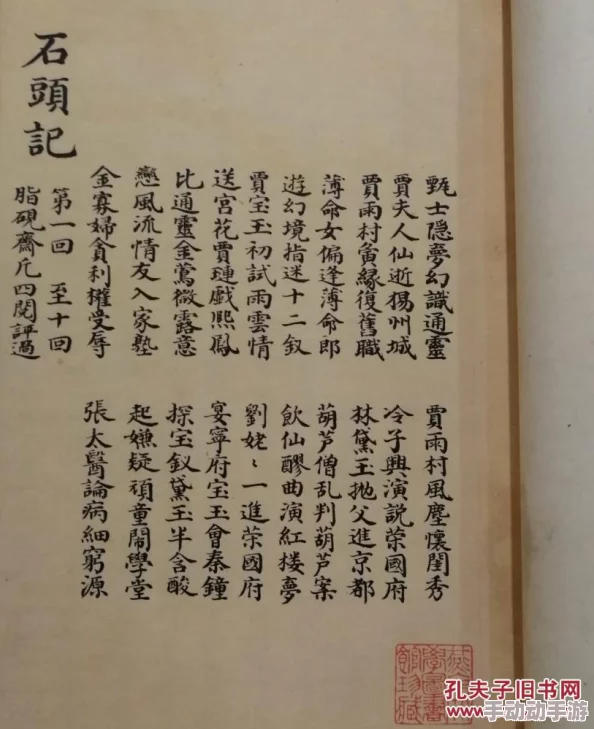 甄士隐夢幻識通靈 賈雨村風塵懷閨秀
賈夫人仙逝揚州城 冷子興演説荣國府
賈雨村夤緣復舊職 林黛玉抛父進京都
薄命女偏逢薄命郎 葫芦僧乱判葫芦案
遊幻境指迷十二釵 飲仙醪曲演紅楼夢
賈宝玉初試雨雲情 劉姥〻一進荣國府
送宫花賈璉戲熙鳳 宴寧府宝玉會秦鐘
比通靈金鶯微露意 探宝釵黛玉半含酸
戀風流情友入家塾 起嫌疑頑童鬧學堂
金寡婦貪利權受辱 張太醫論病細窮源
石頭記
第一回 至十回
脂硯齋凡四閱評過
孔夫子旧书网
手动动手游